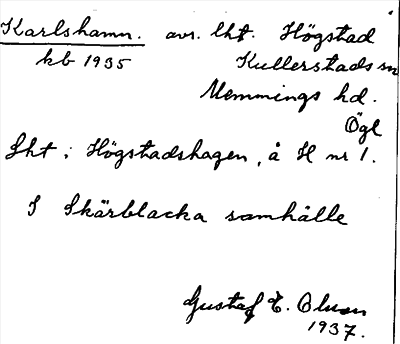 Karlshamn. avs. lht. Högstad
kb 1935 Kullerstads sn
Memmings hd.
Ögl
Lht i Högstadshagen, å H nr 1.
I Skärblacka samhälle
Gustaf E. Olsson
1937.